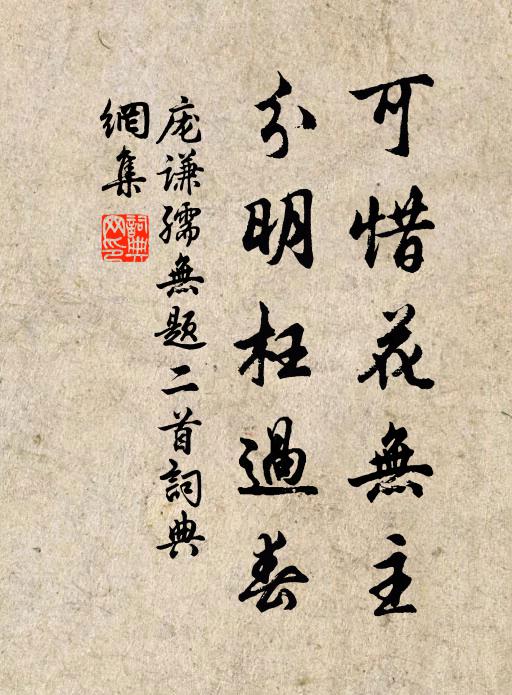 可惜花無主
分明枉過春
庞谦孺無题二首詞典
網集
詞典網印